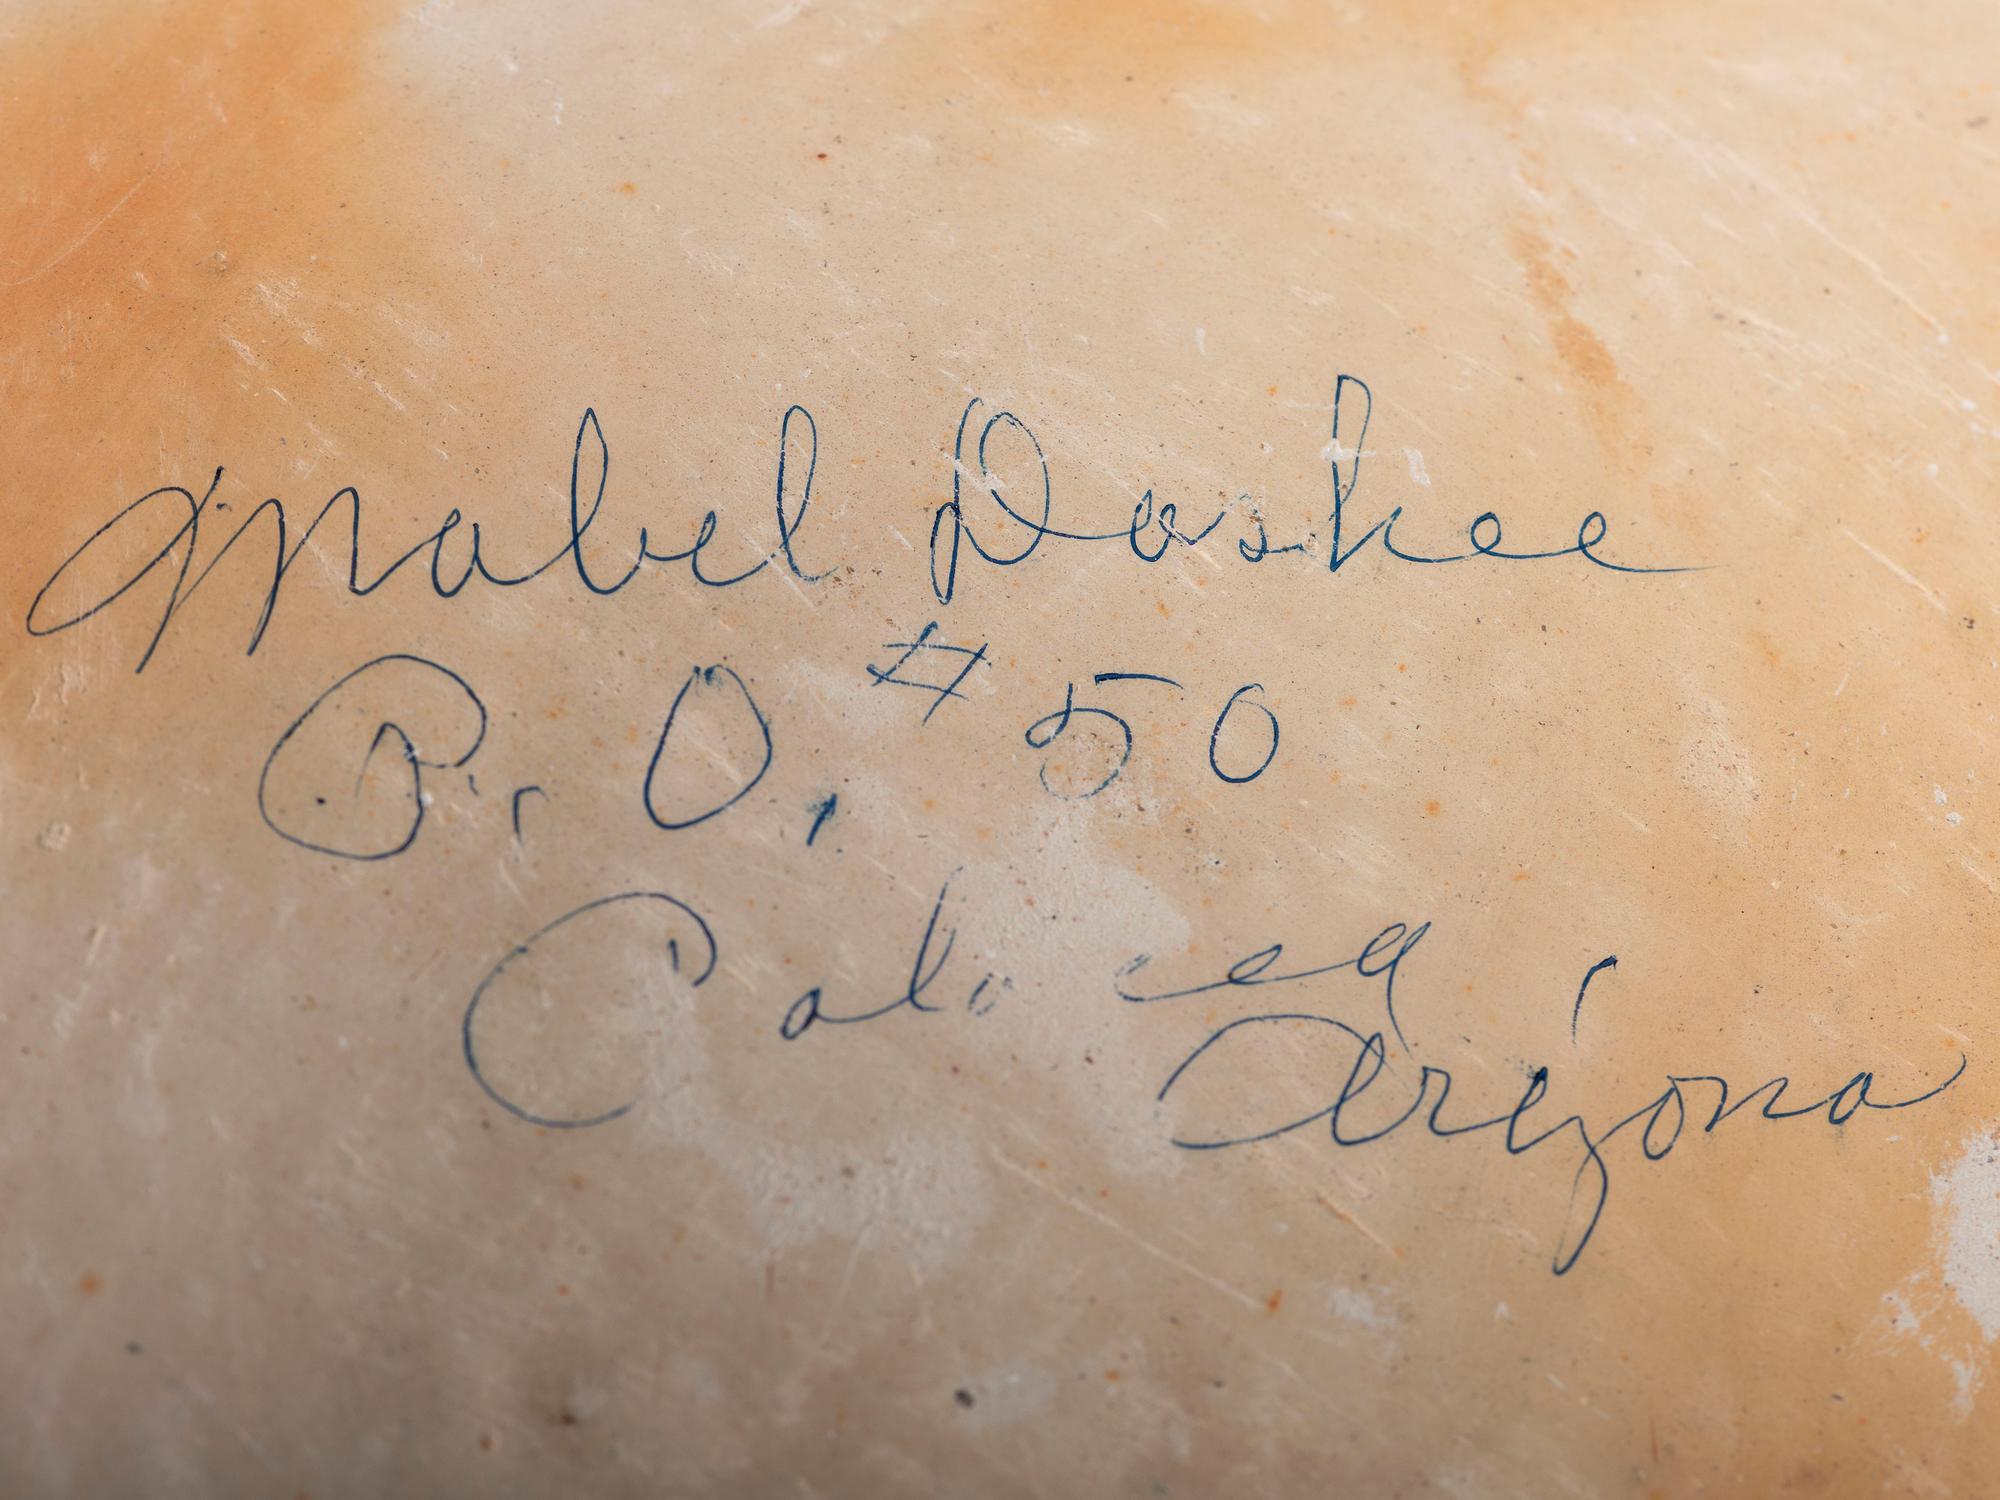 Mabel Doshee
P.O. #50
Polacca
Arizona